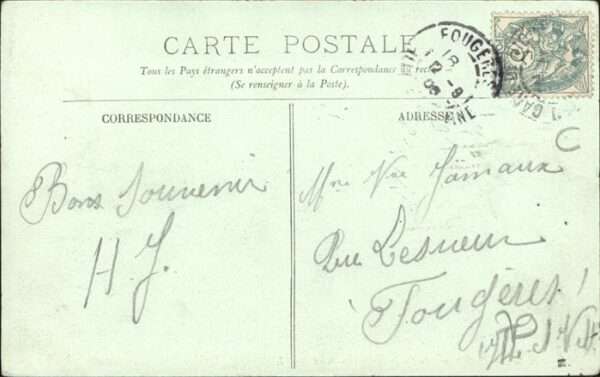 CARTE POSTALE
Tous les Pays étrangers n'acceptent pas la Correspondance au recto
(Se renseigner à la Poste).
CORRESPONDANCE
ADRESSE
FOUGÈRES
Bons Souvenir
H. J.
Mme Vve Jamaux
Rue Lesueur
Fougères